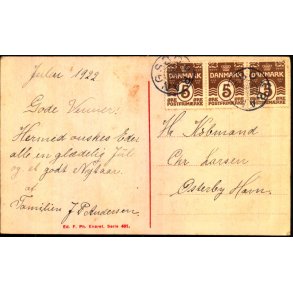 Julen 1922
Gode Venner!
Hermed ønskes Eder
alle en glædelig Jul
og et godt Nytaar.
af
Familien J P Andersen
Ed. F. Ph. Enaret. Serie 491.
DANMARK
5
POSTFRIMÆRKE
DANMARK
5
POSTFRIMÆRKE
DANMARK
5
POSTFRIMÆRKE
Hr. Købmand
Chr Larsen
Østerby Havn.